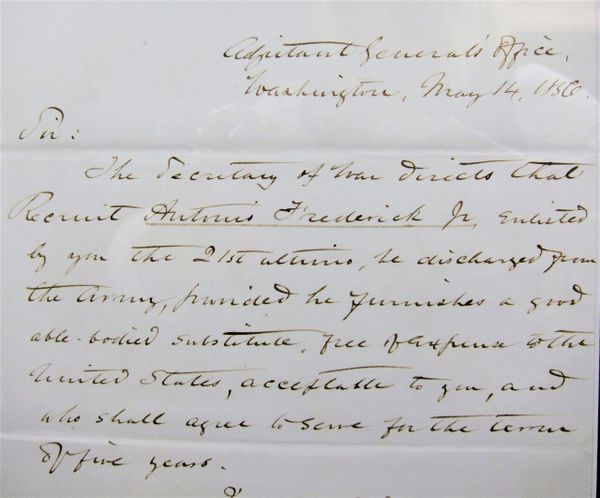 Adjutant General's Office,
Washington, May 14, 1856.
Sir:
The Secretary of War directs that
Recruit Antonio Frederick Jr, enlisted
by you the 21st ultimo, be discharged from
the Army, provided he furnishes a good
able-bodied substitute, free of expense to the
United States, acceptable to you, and
who shall agree to serve for the term
of five years.